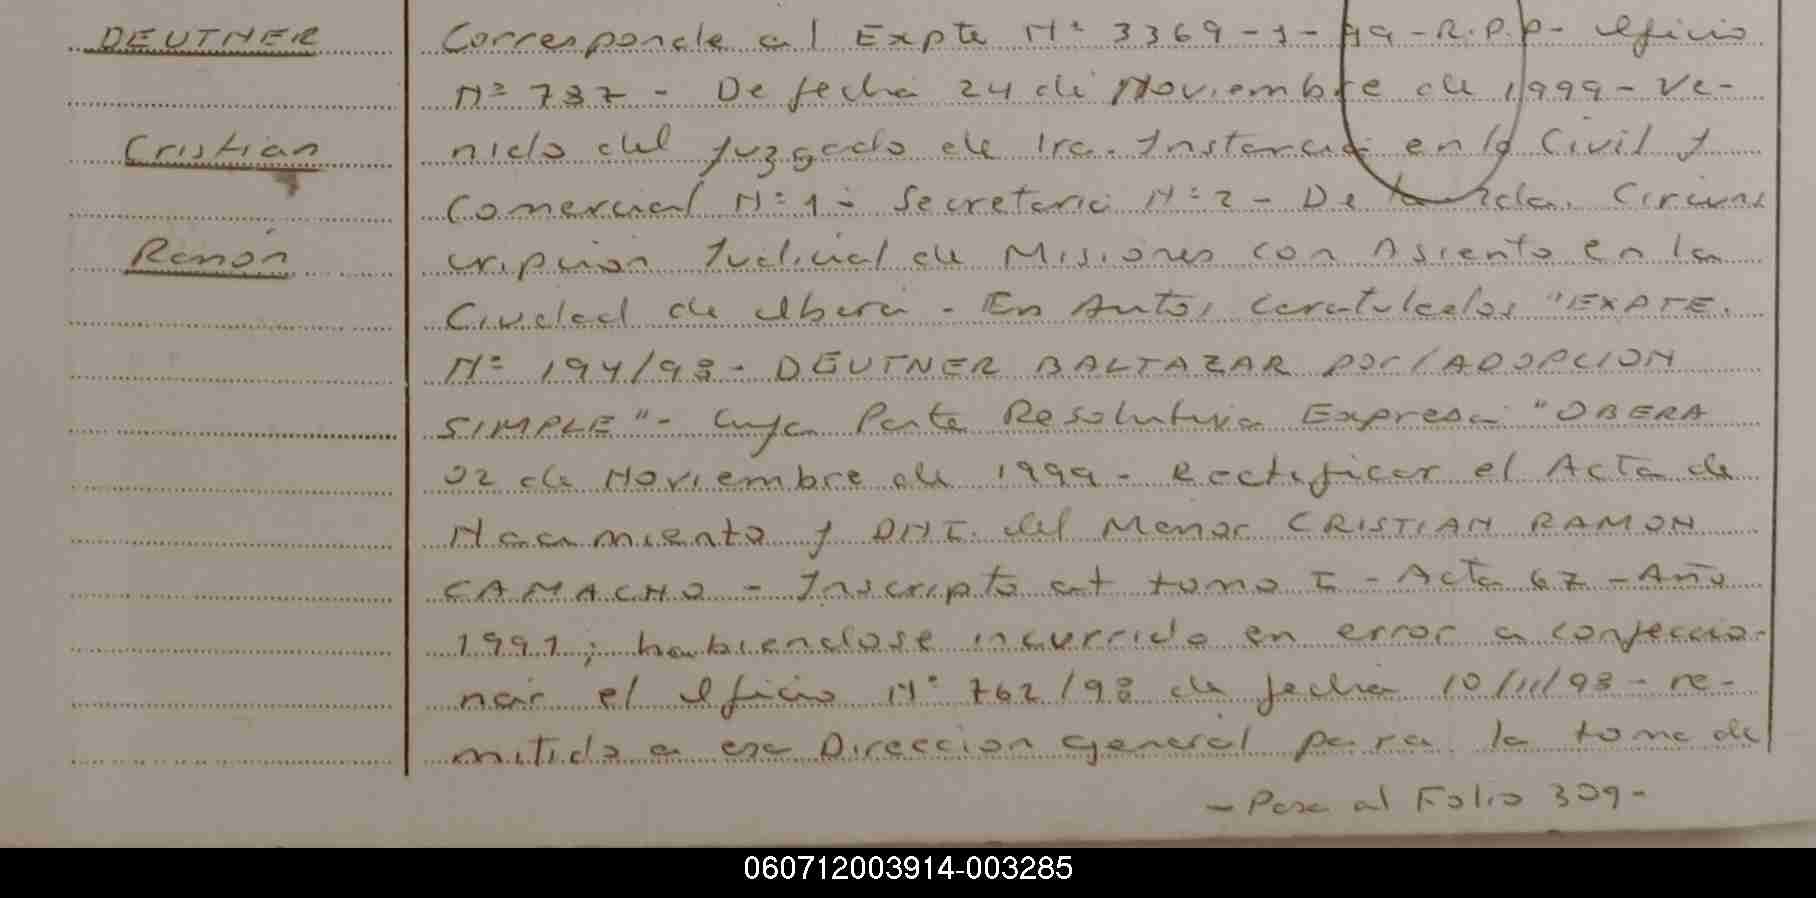 DEUTNER
Cristian
Ramón
Corresponde al Expte Nº 3369-J-99-R.P.P- Oficio
Nº 737 - De fecha 24 de Noviembre de 1999 - Ve-
nido del Juzgado de 1ra. Instancia en lo Civil y
Comercial Nº 1 - Secretaria Nº 2 - De la 2da. Circuns
cripción Judicial de Misiones con Asiento en la
Ciudad de Obera - En Autos Caratulados "EXPTE.
Nº 194/98 - DEUTNER BALTAZAR por/ADOPCION
SIMPLE" - Cuya Parte Resolutiva Expresa "OBERA
02 de Noviembre de 1999 - Rectificar el Acta de
Nacimiento y DNI. del Menor CRISTIAN RAMON
CAMACHO - Inscripto at tomo I - Acta 67 - Año
1991; habiendose incurrido en error a confeccio-
nar el Oficio Nº 762/98 de fecha 10/11/98 - re-
mitido a esa Direccion general para la toma de
- Pasa al Folio 309 -
060712003914-003285